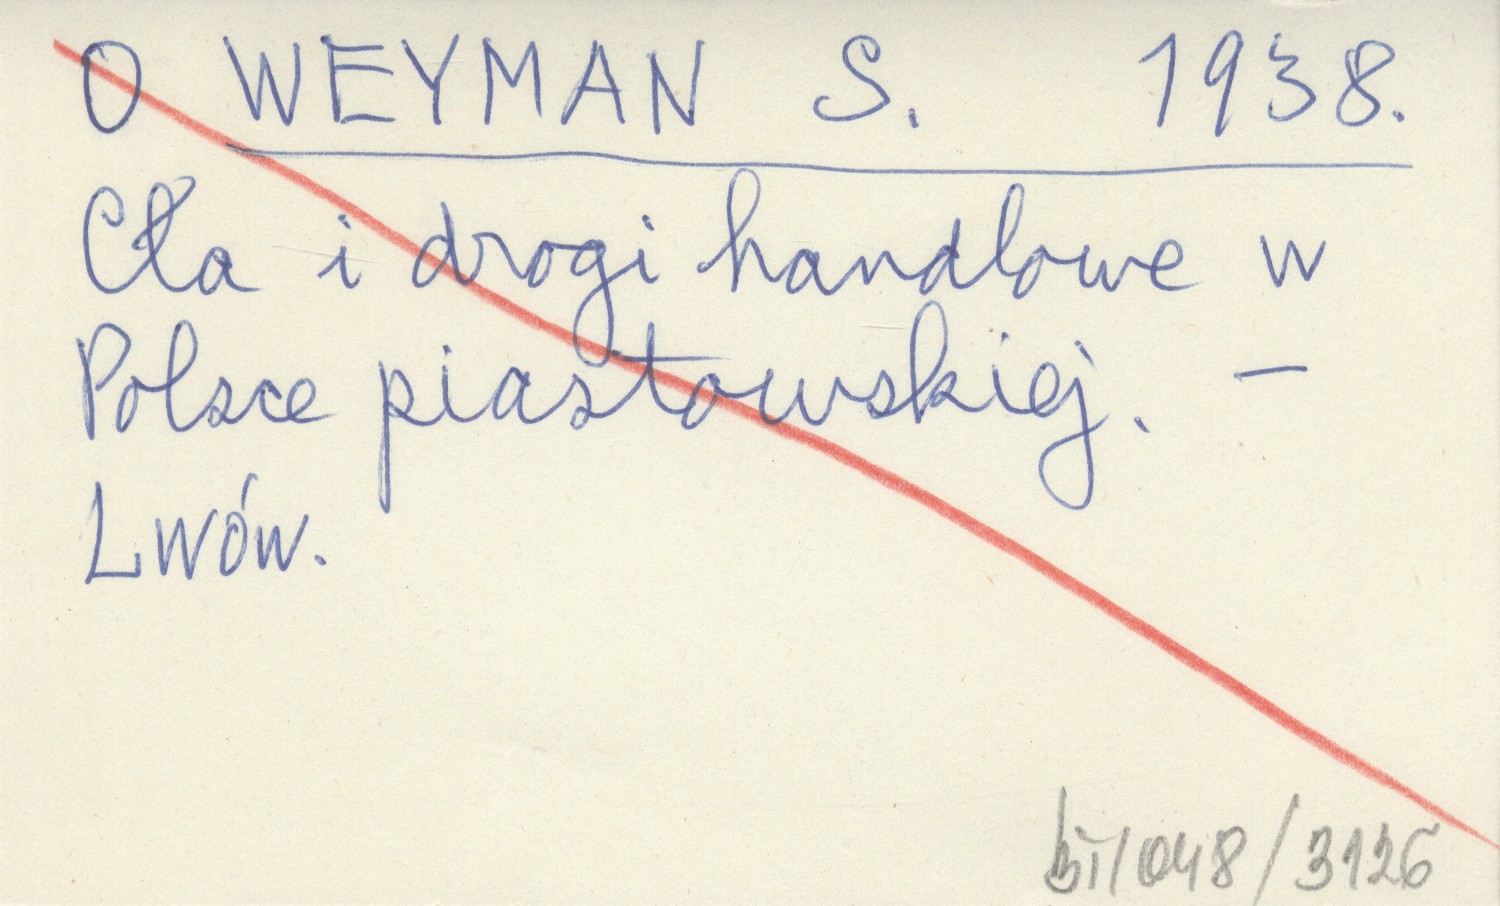 O WEYMAN S. 1938.
Cła i drogi handlowe w
Polsce piastowskiej. –
Lwów.
/048/3126